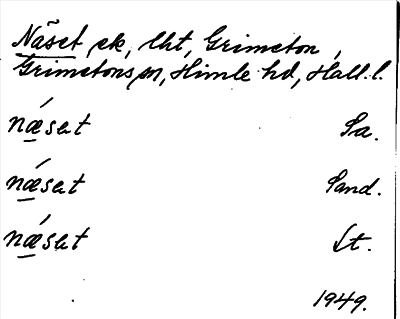 Näset ek, lht, Grimeton,
Grimetons sn, Himle hd, Hall. l.
næ´sat Sa.
næ´sat Sand.
næ´sat St.
1949.